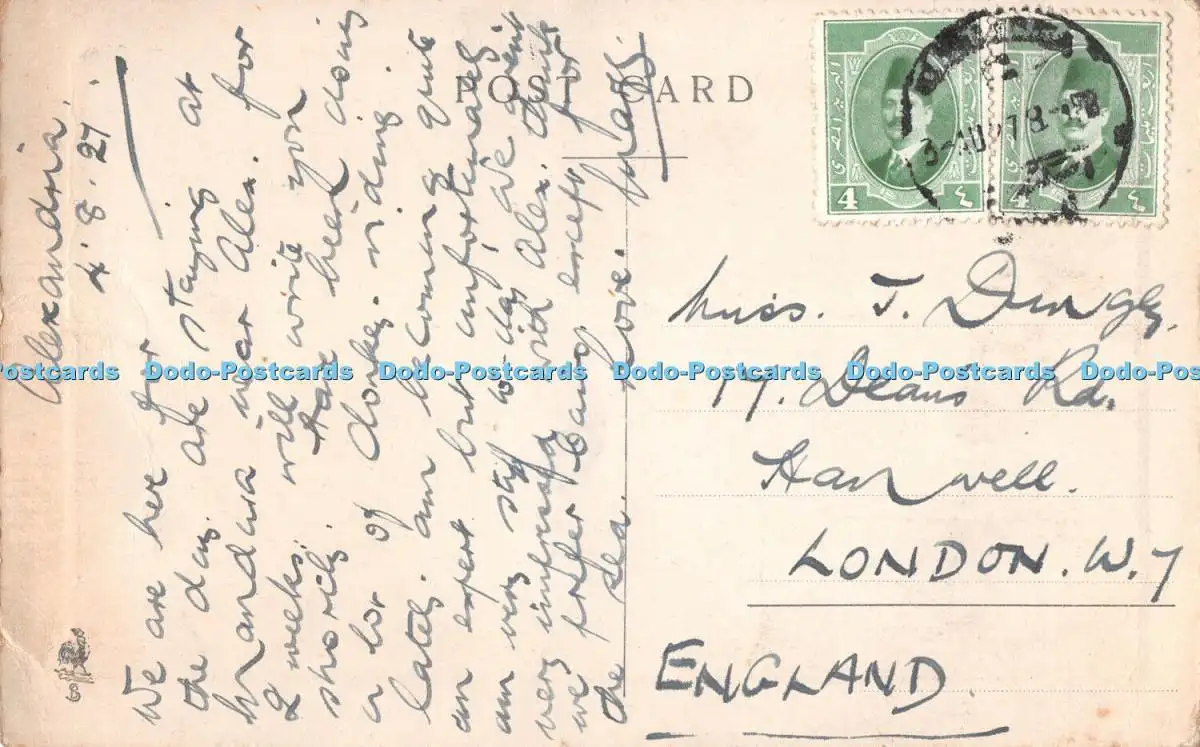 POST CARD
Alexandria.
4.8.27.
We are here for
the day. are staying at
Mandara near Alex. for
2 weeks. will write you
shortly. Have been doing
a lot of donkey riding
lately. am becoming quite
an expert but unfortunately
am very stiff to-day. We aren't
very impressed with Alex. think
we prefer Cairo except for
the sea. Love.
Miss. J.
17. Deans Rd.
Hanwell.
LONDON. W.7
ENGLAND.
4 ٤
4 ٤
3-AU 27 8-
Dodo-Postcards Dodo-Postcards Dodo-Postcards Dodo-Postcards Dodo-Postcards Dodo-Postcards